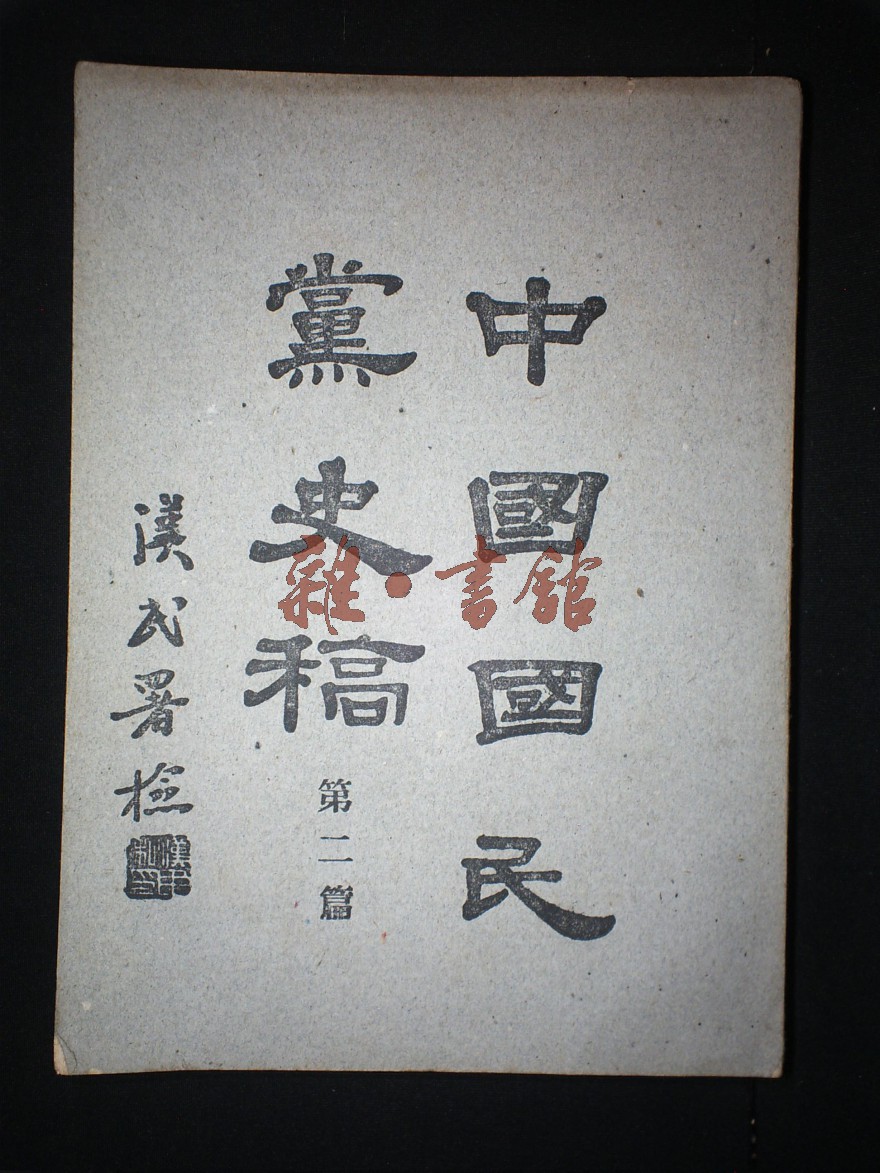 中國國民
黨史稿
第二篇
漢民署檢
雜·書館